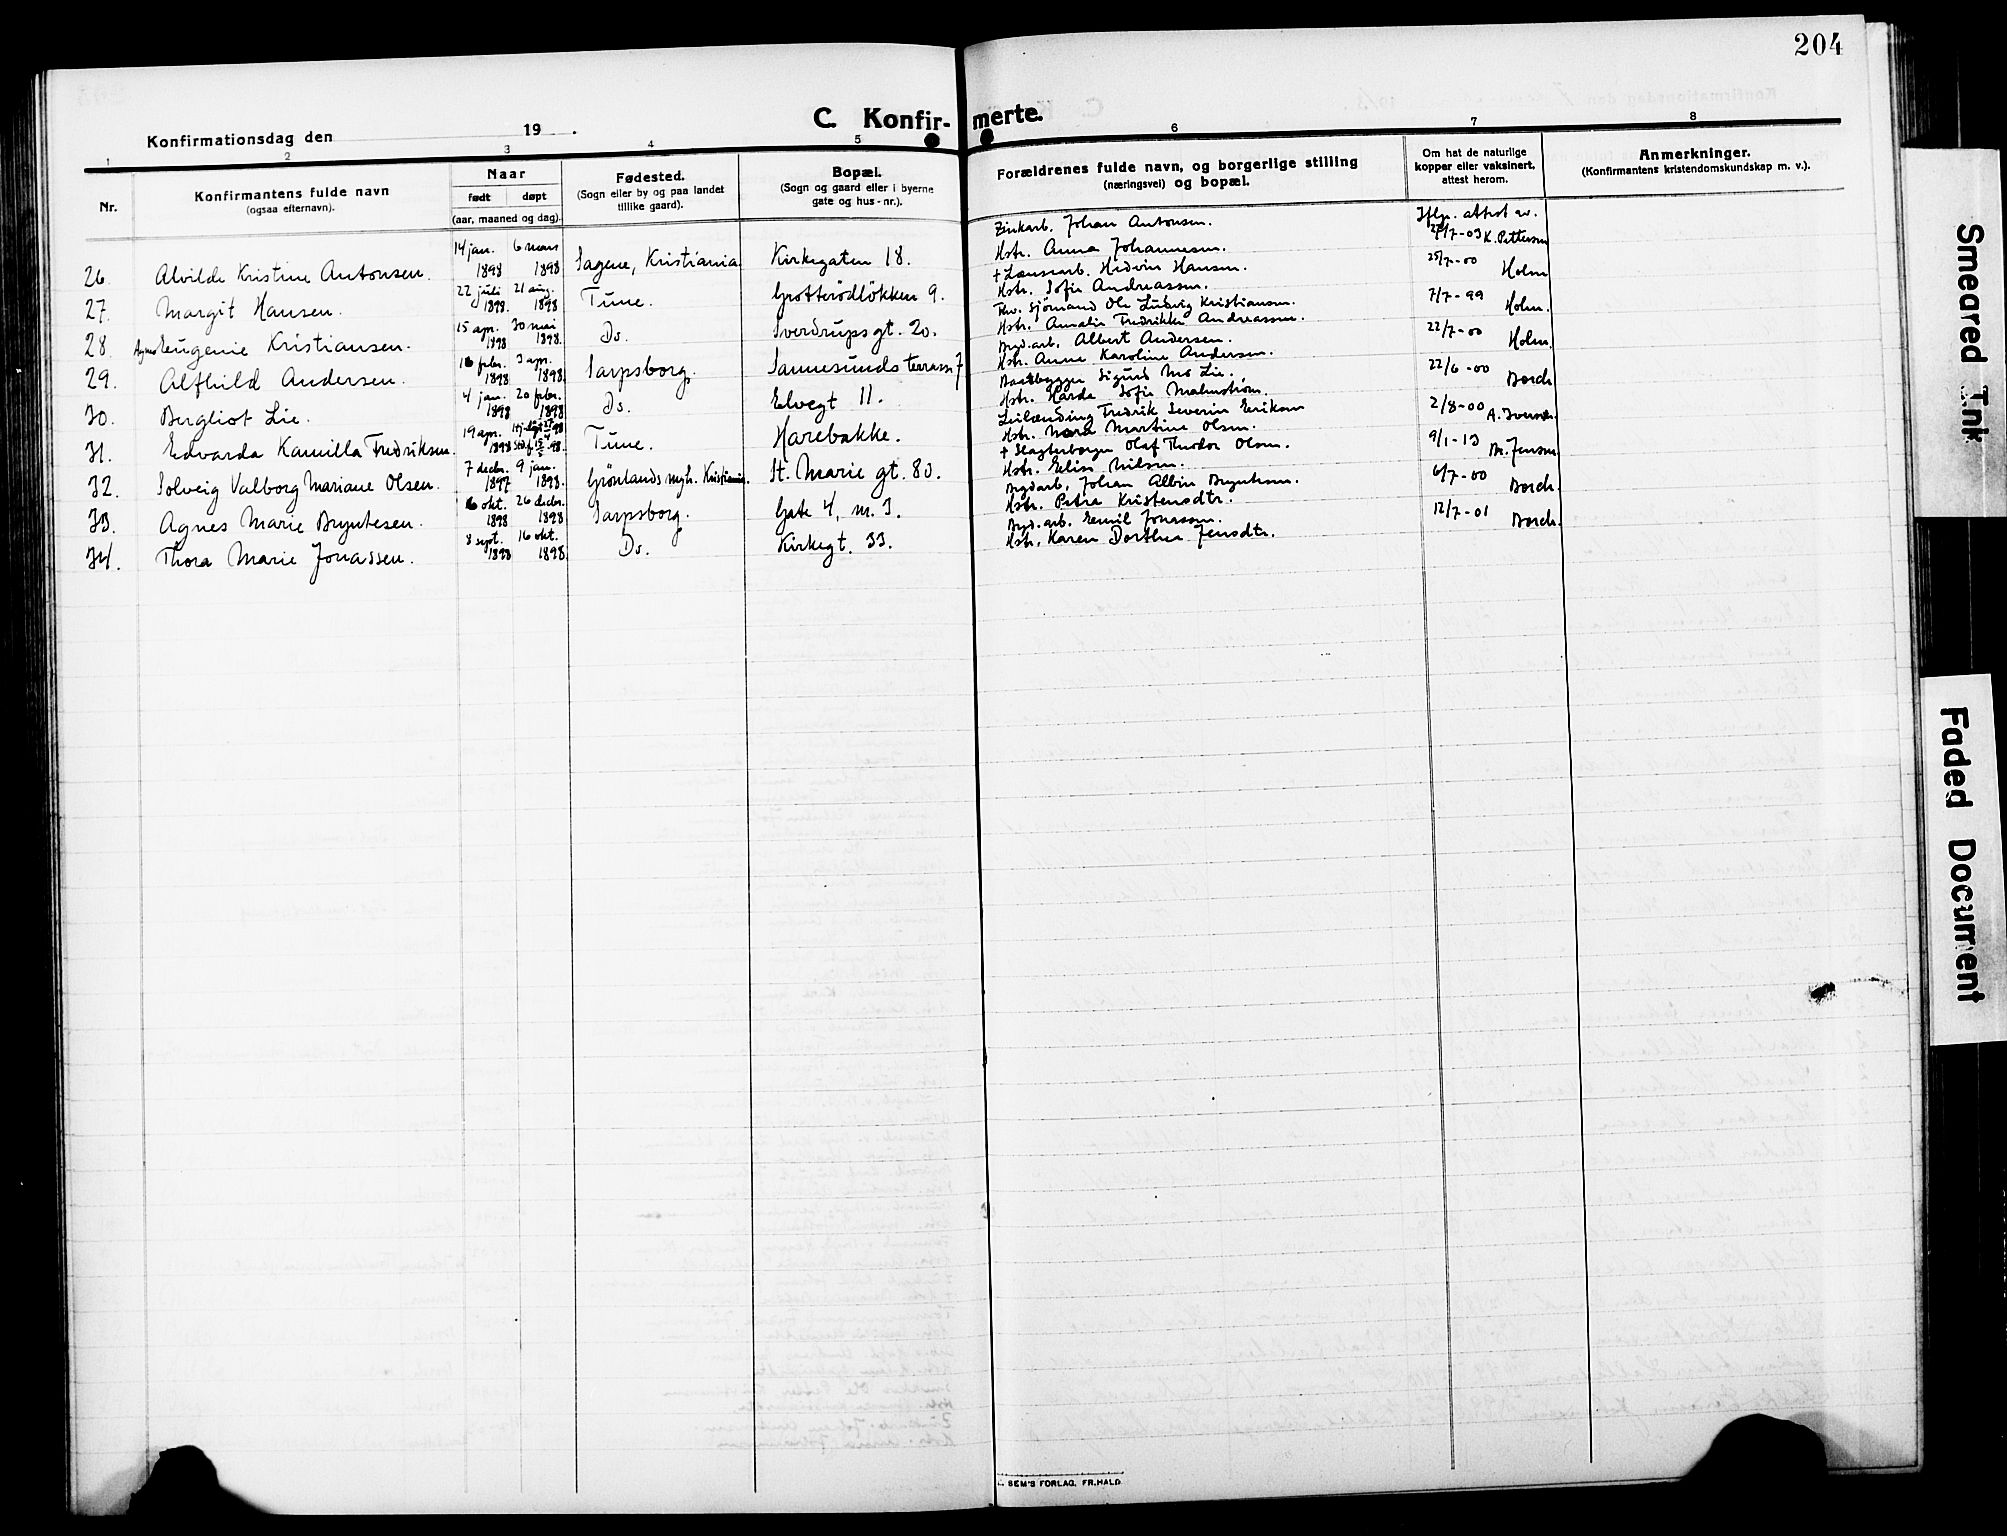 204
C. Konfirmerte.
Konfirmationsdag den 19 .
1 2 3 4 5 6 7 8
Nr.
Konfirmantens fulde navn
(ogsaa efternavn).
Naar
født døpt
(aar, maaned og dag).
Fødested.
(Sogn eller by og paa landet
tillike gaard).
Bopæl.
(Sogn og gaard eller i byerne
gate og hus-nr.).
Forældrenes fulde navn, og borgerlige stilling
(næringsvei) og bopæl.
Om hat de naturlige
kopper eller vaksinert,
attest herom.
Anmerkninger.
(Konfirmantens kristendomskundskap m. v.).
26. Alvilde Kristine Antonsen. 14 jan. 1898 6 mars 1898 Sagene, Kristiania Kirkegaten 18.
Zinkarb. Johan Antonsen.
Hstr. Anna Johannesen.
Iflg. attest av.
27/7-03 K. Pettersen
27. Margit Hansen. 22 juli 1898. 21 aug. 1898 Tune. Grotterødløkken 9.
+ Lænsearb. Hedvin Hansen.
Hstr. Sofie Andreassen.
25/7-00 Holm
28. Agnes Eugenie Kristiansen. 15 apr. 1898 30 mai 1898. Ds. Sverdrupsgt. 20.
Fhv. Sjømand Ole Ludvig Kristiansen.
Hstr. Amalie Fredrikke Andreassen.
7/7-99 Holm.
29. Alfhild Andersen. 16 febr. 1898 3 apr. 1898. Sarpsborg. Sannesunds terrasse 7
Bryd.arb. Albert Andersen.
Hstr. Anne Karoline Andersen.
22/7-00 Holm.
30. Bergliot Lie. 4 jan. 1898 20 febr. 1898 Ds. Elvegt 11.
Baatbygger Sigurd Mo Lie.
Hstr. Harda Sofie Malmstrøm.
22/6-00 Borch
31. Edvarda Kamilla Fredriksen. 19 apr. 1898 Tune. Harebakke.
Leilænding Fredrik Severin Eriksen
Hstr. Nora Martine Olsen.
2/8-00 A. Iversen
32. Solveig Valborg Mariane Olsen. 7 decbr. 1897 9 jan. 1898. Grønlands mgh. Kristiania. St. Marie gt. 80.
+ Slagterborger Olaf Theodor Olsen.
Hstr. Elise Nilsen.
9/1-13 M. Jensen
33. Agnes Marie Bryntesen. 6 okt. 1898 26 decbr. 1898 Sarpsborg. Gate 4, nr. 3.
Brydarb. Johan Albin Bryntesen.
Hstr. Petra Kristensdtr.
6/7-00 Borch.
34. Thora Marie Jonassen. 8 sept. 1898 16 okt. 1898. Ds. Kirkegt. 33.
Bryd.arb. Emil Jonassen.
Hstr. Karen Dorthea Jensdtr.
12/7-01 Borch.
SEM'S FORLAG, FR.HALD
Smeared Ink
Faded Document